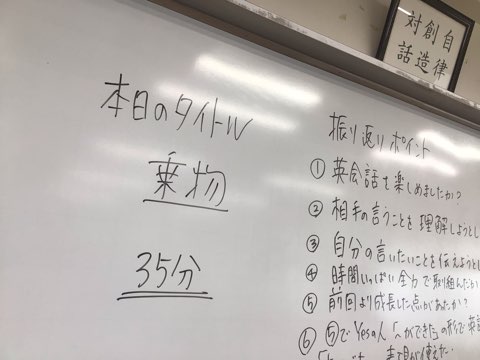 自律
創造
対話
本日のタイトル
乗物
35分
振り返りポイント
① 英会話を楽しめましたか?
② 相手の言うことを理解しようとし
③ 自分の言いたいことを伝えようとし
④ 時間いっぱい全力で取り組んだか
⑤ 前回より成長した点があったか?
⑥ ⑤でYesの人「〜ができた」の形で英語